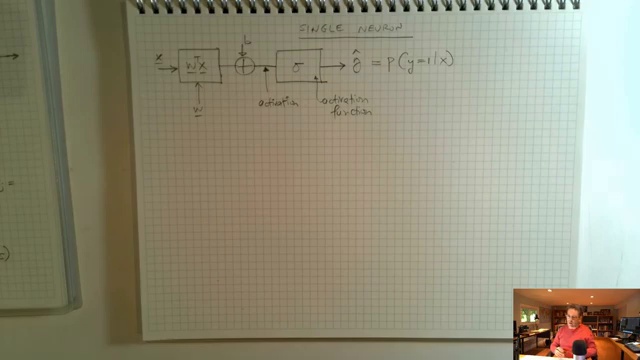 SINGLE NEURON
b
x
wᵀx
σ
ŷ = p(y=1|x)
w
activation
activation
function